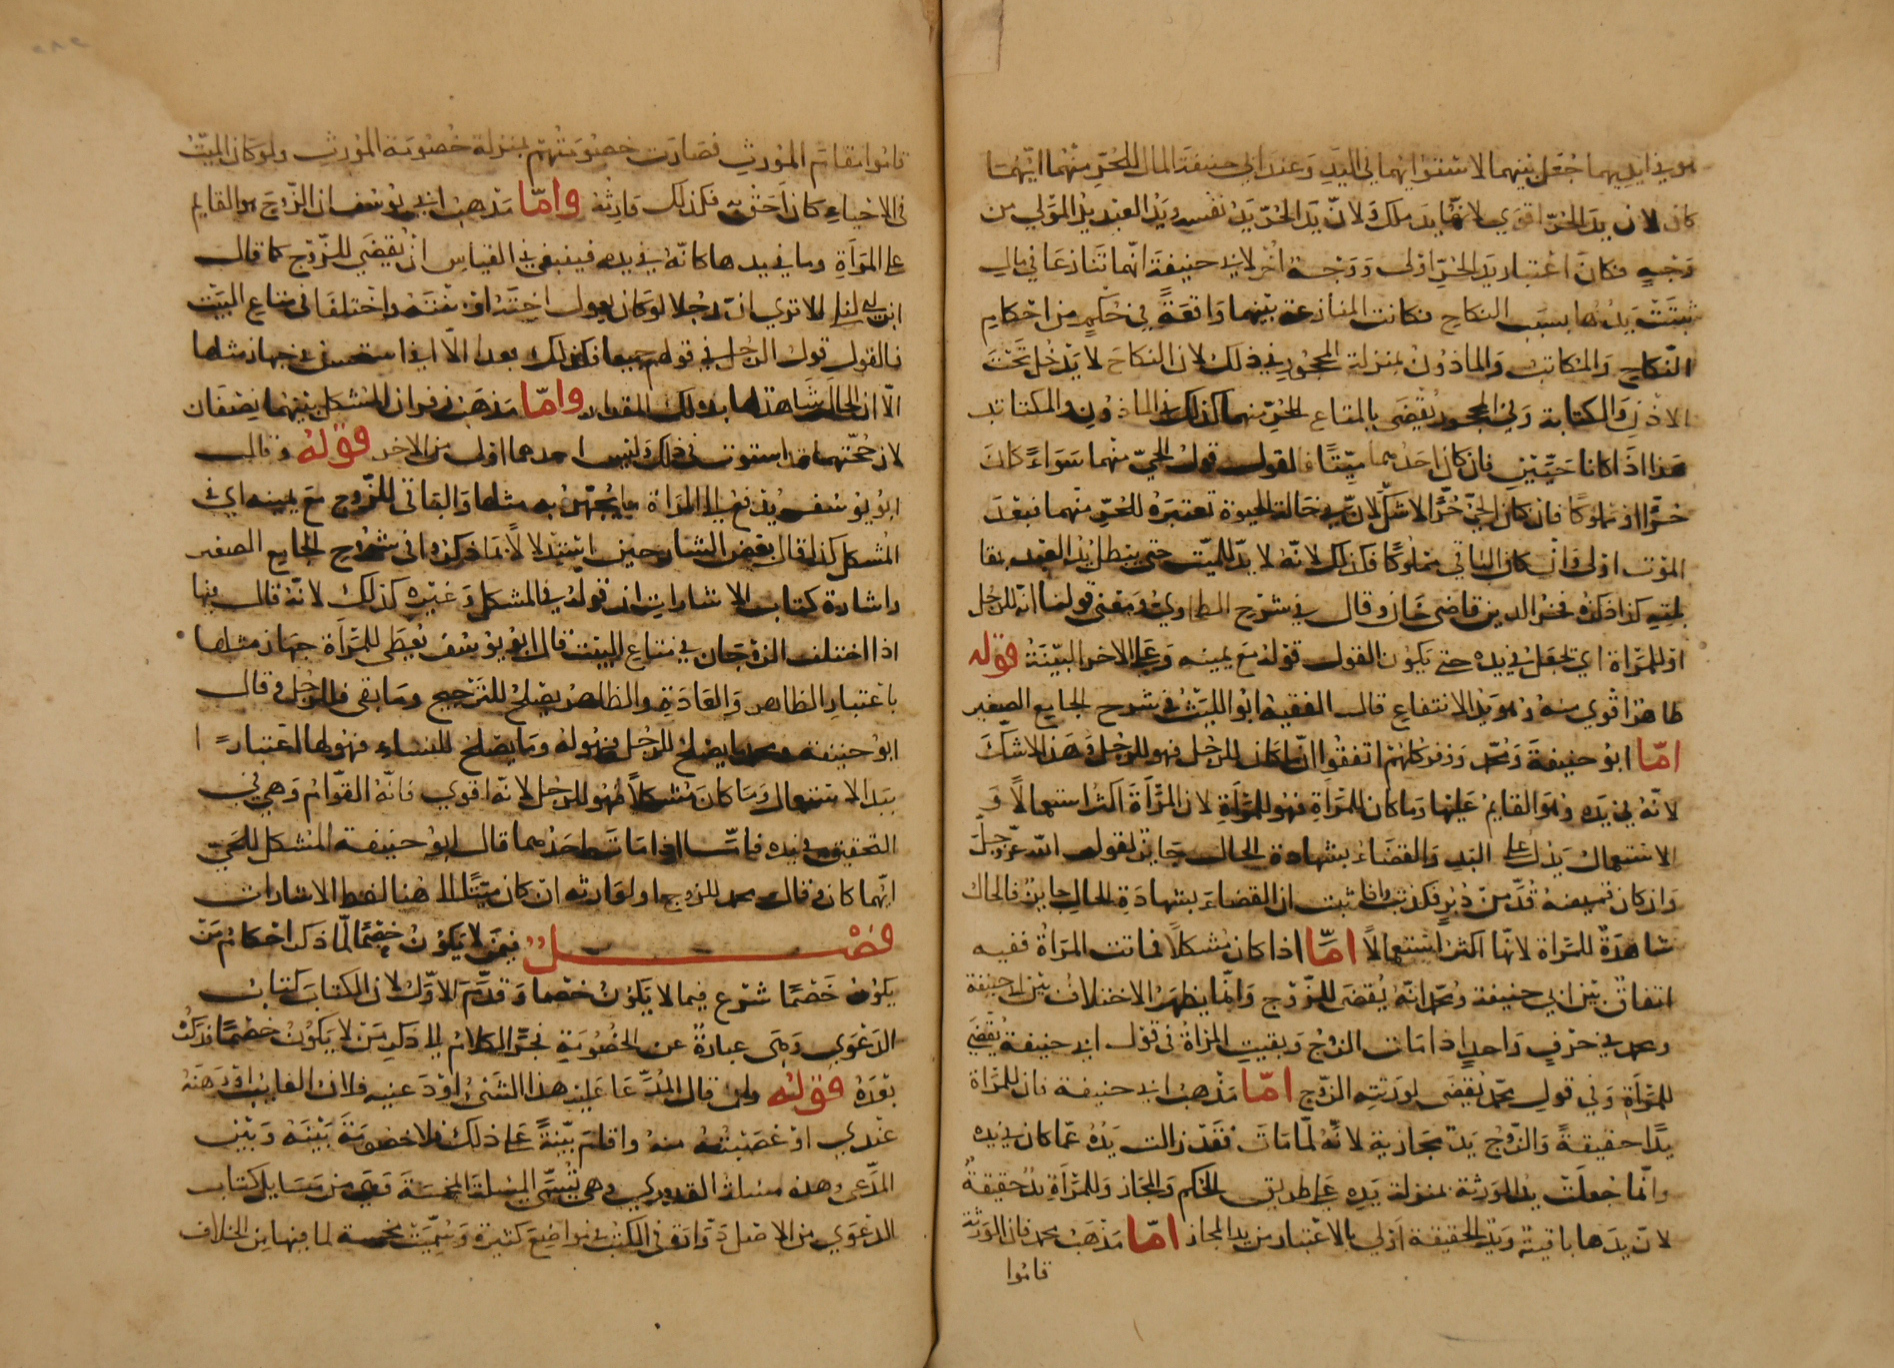 هو في ايديهما جُعل بينهما لاستوائهما في اليَدِ وَعند ابي حنيفة المال للحُرّ منهُما ايّهُما
كان لان يدَ الحُرّ اقوَي لانها يد ملك وَلانّ يدَ الحُرّ يَدُ نفسه وَيَدُ العبد يدُ المَوْلي من
وَجْهٍ فكانَ اعْتبار يَدِ الحُرّ اولى وَوَجْهٌ اخُر لابي حنيفة انّهما تنازعَا في مالٍ
ثبتَتْ يدُهُما بسبَب النكاح فكانت المنازعة بينهما وَاقعَةً في حُكمٍ من احْكامِ
النّكاح وَالمكاتبُ وَالماذوُن بمنزلة المحجُورِ في ذلك لان النكاحَ لا يَدْخُل تَحْتَ
الاذْنِ وَالكتابة وَفي المحجور يُقضَى بالمتاع للحُرّ منهما كذلك في الماذوُن والمكتاتب
هَذا اذَا كانا حَيّيْن فان كان احَدُهما ميّتًا فالقول قولُ الحيّ منهما سَوَاءً كانَ
حُرًّا اوْ مملوكًا فان كان الحيّ حُرًّا لا شكّ لانّ في حَالة الحيوة تعتبَرُ للحُرّ منهما فبعْدَ
المَوْت اوْلى وَانْ كان الباقي ممْلوُكًا فكذلك لانّهُ لا يدَ للميّت حتى يبطل يدُ العَبْد بمقا
بلته كذا ذكرهُ فخرُ الدين قاضي خَان وقال في شرْح الطحاوي وَمعْنى قولنا انّهُ للرّجُل
اوْ للمَرْاة اي تجعَل في يَدِه حتى يَكوُن القول قولهُ مَع يمينه وَعَلى الاخر البيّنَة قوْله
ظاهرًا قوي منهُ وَهو يَدُ الانتفاع قال الفقيهُ ابوُ الليْثُ في شرح الجامع الصّغير
امّا ابوُ حنيفةَ وَمُحمّد وَزفر كلهُمْ اتّفقُوا انّ ما كان للرّجُل فهو للرّجُل وَهَذا لا شكَ
لانّهُ في يَدِه وَهُوَ القايمُ عَليْها وَما كان للمَرْاَةِ فهُو للمَرْاَةِ لان المَرْاَةَ اكثر استعمالاً وَ
الاسْتعمال يَدُل على اليَدِ وَالقضَاءُ بشهادة الحال جَايز لقوله الله عزّ وَجَلّ
وَان كان قميصُهُ قُدَّ منْ دُبُرٍ فكذبَتْ وَاذا ثبت ان القضاءَ بشهادَةِ الحال جايزٌ فالحال
شاهدَةٌ للمَرْاة لانّها اكثر اسْتعمالاً امّا اذا كان مُشكلاً فماتت المرَاةُ ففيه
اتفاقٌ بيْن ابي حنيفة وَمُحمّد انّهُ يُقضَى للزّوْج وَانّما يظهَرُ الاختلافُ بيْن ابي حنيفة
ومحمد في حَرْفٍ وَاحدٍ اذا مَات الزوْجُ وَبقيت المَرْاةُ في قوْل ابي حنيفة يُقْضَى
للمَرْاَةِ وَفي قولِ محَمّد يُقْضَى لوَرَثةِ الزَّوْج امّا مَذْهبُ ابي حنيفة فان للمَرْاة
يدًا حقيقةً وَالزّوْجُ يَدٌ مجازية لانّهُ لمّا مَاتَ فقَدْ زالت يَدُهُ عمّا كان في يَدِه
وانّما جُعلَتْ يدُ الوَرَثة بمنزلة يَدِهِ عَلى طريق الحُكم وَالمجَاز وَللمَرْاَةِ يَدٌ حقيقةٌ
لانّ يدَها باقيةٌ وَيَدُ الحقيقة اَوْلى بالاعْتبار من يد المجاز امّا مَذهَبُ محمد فان الوَرَثة
قاموا
قامُوا مقام المُوَرثِ فصَارَت خصُومَتُهم بمنزلة خُصُومَة المُوَرثِ وَلو كان الميّتُ
في الاحْياءِ كان اَحَق به فكذلك وَارِثُهُ وامّا مَذهبُ ابي يوُسُف ان الزّوْجَ هو القايم
على المَرْاَةِ وما في يدها كانّهُ في يده فينبغي في القياس انْ يُقْضَى للزّوْج كما قال
ابن ابي ليلى الا ترى انّ رجُلا لو كان يعول اخته اوْ بنْتَهُ واخْتلفا في متاع البيْت
فالقول قولُ الرّجُل في قولهم جميعا فكذلك هذا الّا اني استحسن في جهاز مثلها
الّا ان الحَال شَاهدٌ لها بذلك المقدار وامّا مَذهَبُ زفر ان المُشكل بينهُما نِصْفَان
لان حُجّتهما قد استوت في ذلك ليْس احدهما اولى من الاخر قوْلهُ وَقال
ابوُ يوُسُف يُدْفع الى المَرْاة ما يُجهّزُ به مثلها وَالباقي للزّوج مَع يمينه اي في
المُشكل كذا قال بعْض الشارحين اسْتدلالاً بما ذكروا في شروح الجامع الصغير
واشارة كتاب الاشارات ان قولهُ في المشكل وَغيْرِه كذلك لانّهُ قال فيها
اذا اختلف الزوْجَان في متاع البيْت قال ابوُ يوُسُف يُعطَى للمَرْاَة جهَاز مثلها
باعْتبارِ الظاهر وَالعَادَةِ والظاهرُ يصْلحُ للتَرْجيح وَمَا بَقي فللرّجُل وَقال
ابوُ حنيفة ومحمد ما يصْلحُ للرّجُل فهُو لهُ وَما يَصْلحُ للنساء فهُو لها اعتبارًا
بيَد الاستعمال وَمَا كان مُشكلاً فهُو للرّجُل لانّهُ اقوي فانّهُ القوّامُ وَهي في
التحقيق في يده فامّا اذا مَات احَدُهما قال ابوُ حنيفة المُشكل للحَيّ
ايّهما كان وقال محمد للزوج او لوَارثه انْ كان ميّتًا الى هُنا لفظ الاشارات
فصْل فيمَنْ لا يَكوُنُ خصْمًا لمّا ذكر احْكام مَنْ
يَكوُن خَصْمًا شرَع فيمن لا يَكوُنُ خصْما وَقدّمَ الاوّل لان الكتابَ كتابُ
الدّعْوَى وَهيَ عبارَةٌ عن الخُصُومَةِ فجَرَّ الكلامُ الى ذكر مَنْ لا يَكوُنُ خصْمًا فذكرهُ
بَعْدَهُ قوْلهُ وان قال المُدّعَا عَليْه هذا الشَئُ اوْدَعنيه فلان الغايب اوْ رَهنهُ
عنْدي اوْ غصَبْتُهُ منهُ واقامَ بيّنةً عَلى ذلك فلا خصُومَةَ بَيْنَهُ وَبَيْن
المدّعى وهذه مسئلة القدُوري وَهي تُسَمّى المسئلةَ المُخمَّسَةَ وَهي من مَسَايل كتاب
الدعْوَى من الاصْل وَوَاقع في الكتُب في موَاضِعَ كثيرة وَسُمِّيَتْ مُخمسة لما فيها من الخلاف